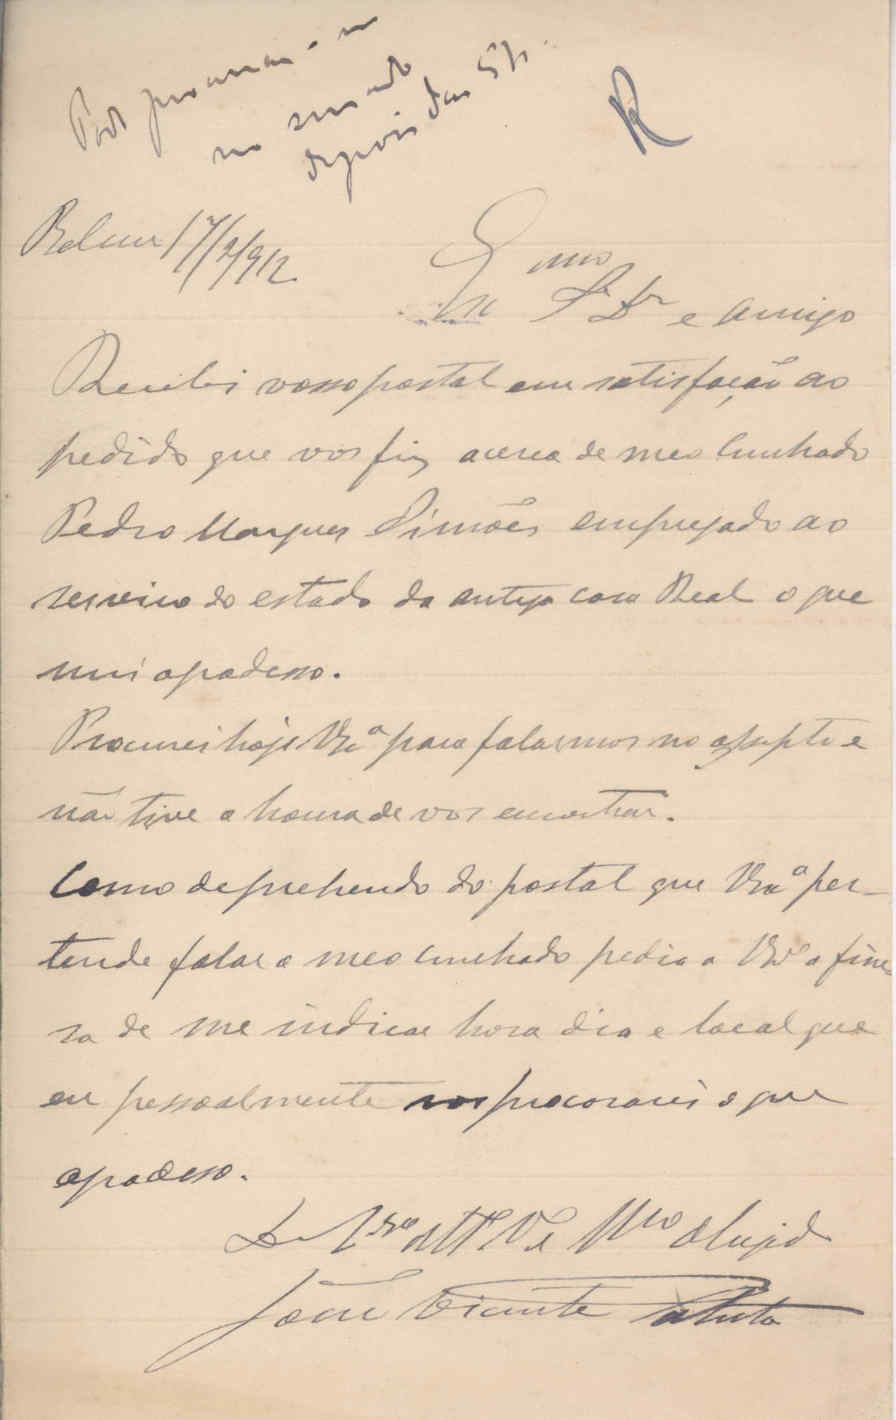 Pode procurar-me
no senado
depois das 5 h.
R
Belem 17/2/912
Exmo
Sr Dr e amigo
Recebi vosso postal em satisfação ao
pedido que vos fiz acerca de meo Cunhado
Pedro Marques Simões empregado ao
serviço do estado da antiga casa Real o que
mui agradeso.
Procurei hoje Vxª para falarmos no assupto e
não tive a honra de vos encontrar.
Como deprehendo do postal que Vxª per-
tende falar a meo cunhado pedia a Vxª a fine-
sa de me indicar hora dia e local que
eu pessoalmente vos procorarei o que
agradeso.
De Vxª Attº Vº e Mto Obrigado
João Vicente